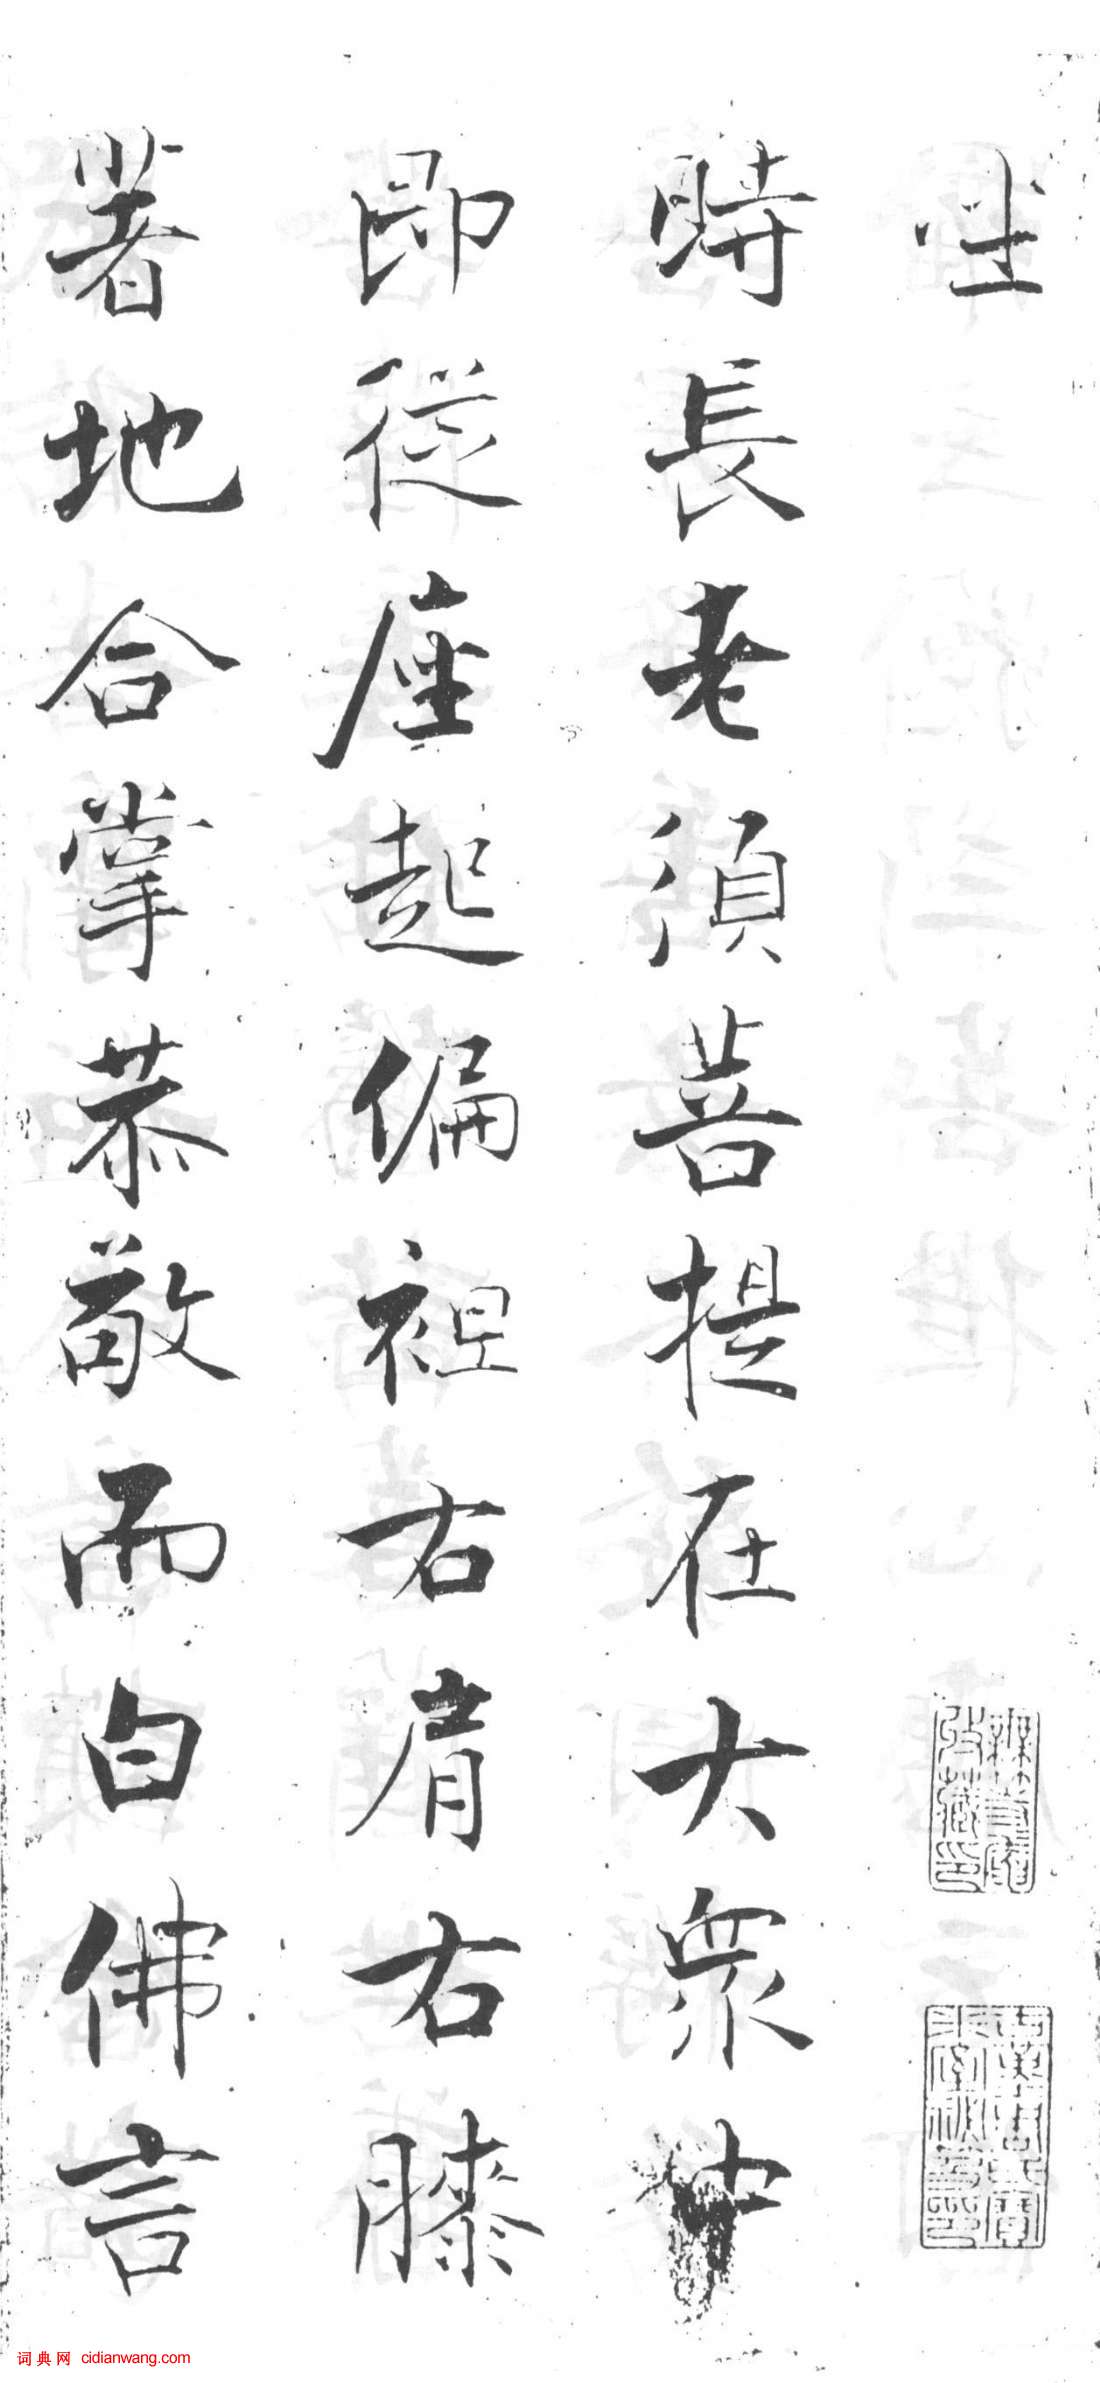 坐
時長老須菩提在大衆中
即從座起偏袒右肩右膝
著地合掌恭敬而白佛言
词典网 cidianwang.com